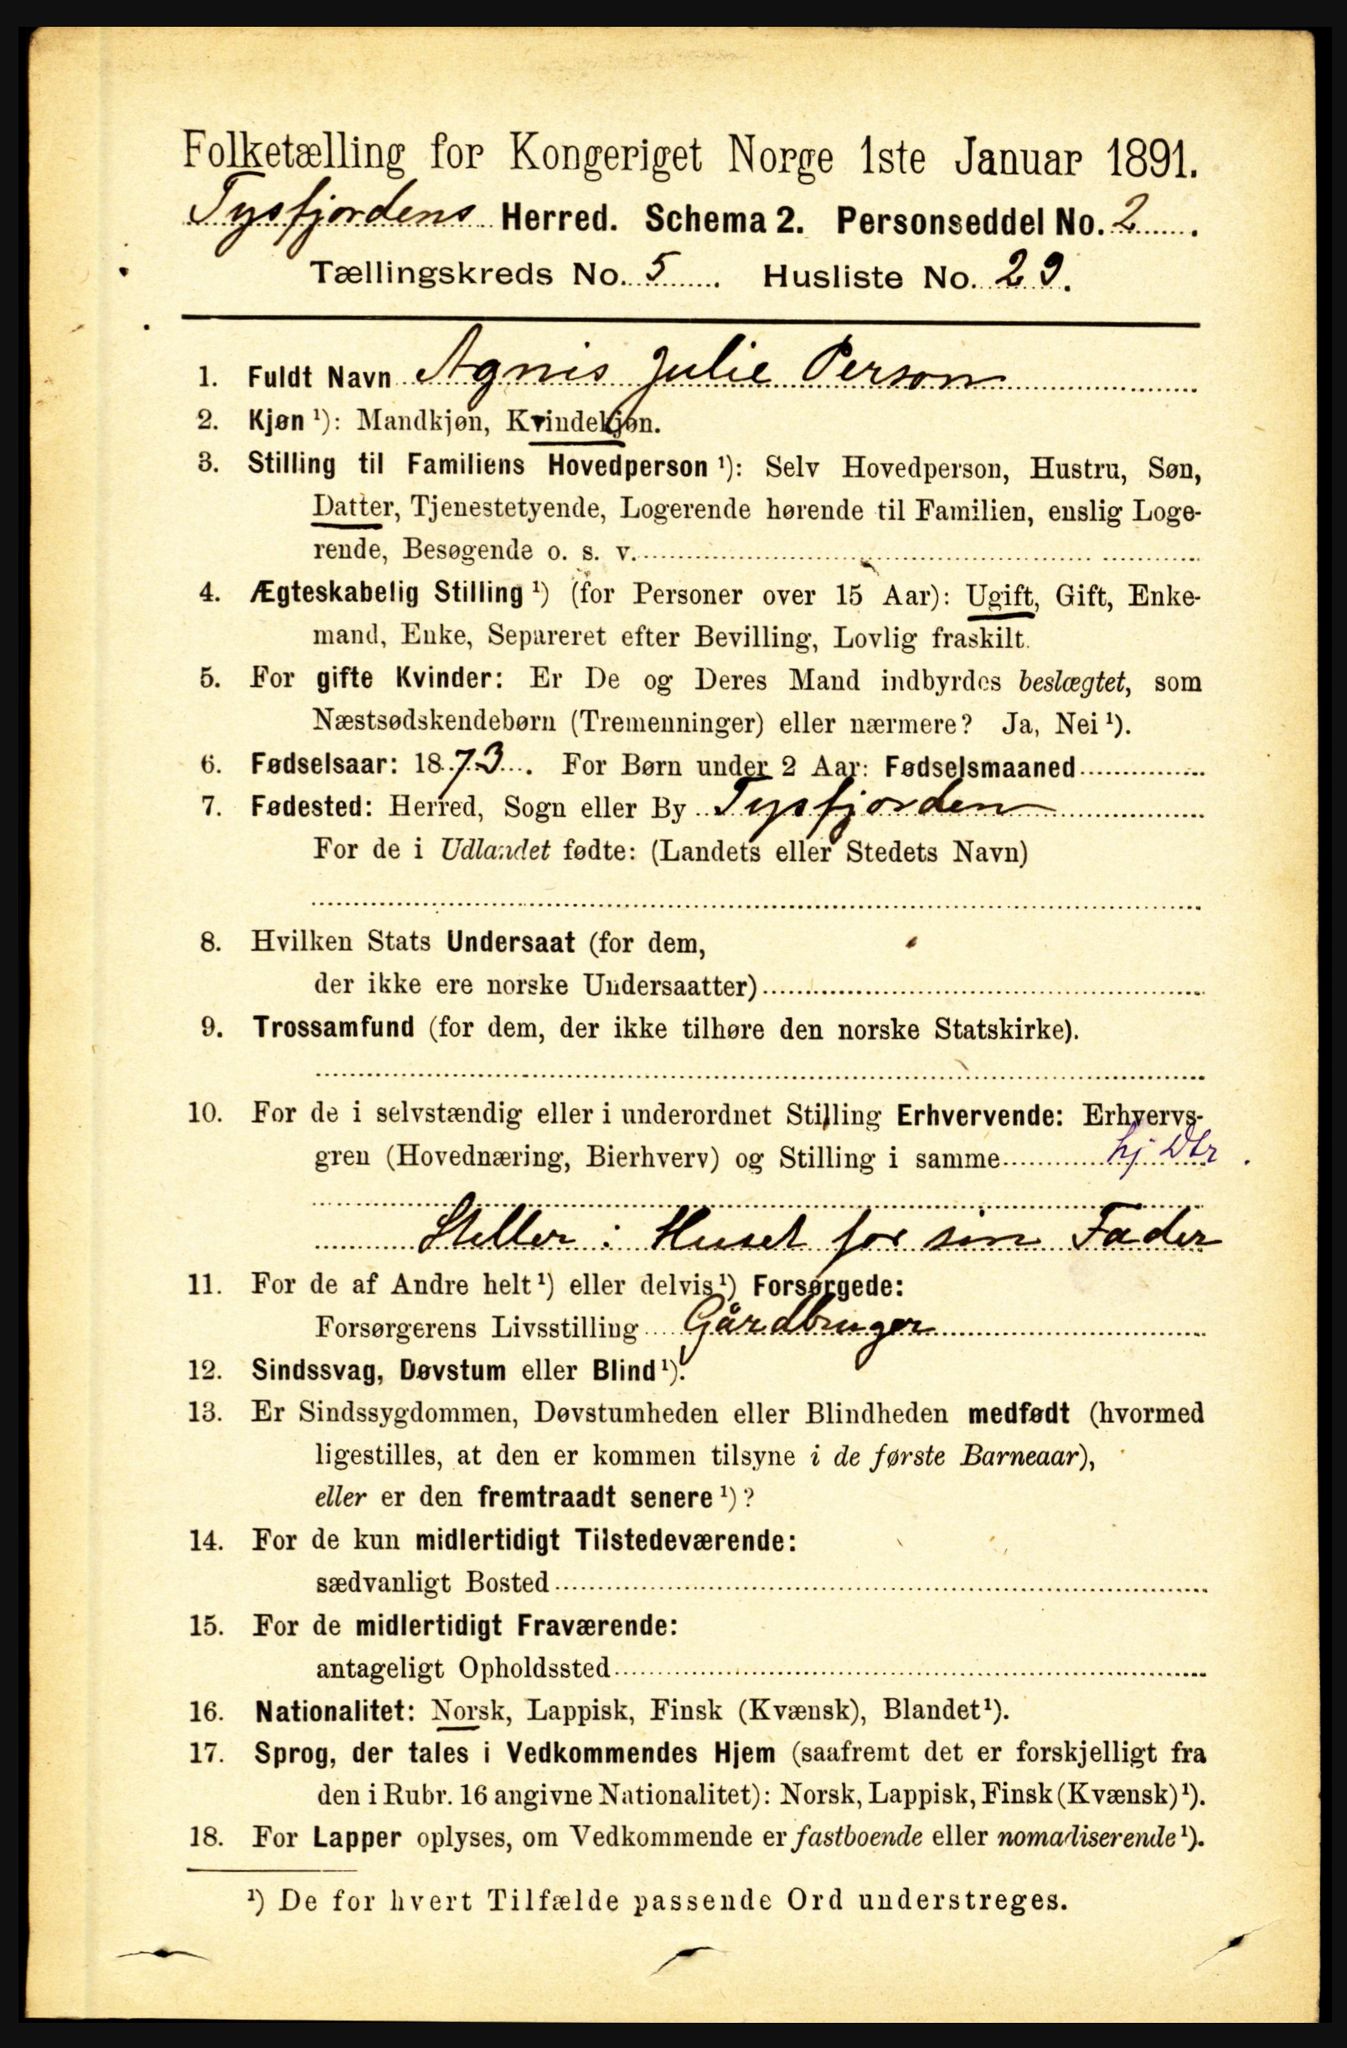 Folketælling for Kongeriget Norge 1ste Januar 1891.
Tysfjordens Herred. Schema 2. Personseddel No. 2
Tællingskreds No. 5 Husliste No. 29.
1. Fuldt Navn Agnis Julie Person
2. Kjøn ¹): Mandkjøn, Kvindekjøn.
3. Stilling til Familiens Hovedperson ¹): Selv Hovedperson, Hustru, Søn,
Datter, Tjenestetyende, Logerende hørende til Familien, enslig Loge-
rende, Besøgende o. s. v.
4. Ægteskabelig Stilling ¹) (for Personer over 15 Aar): Ugift, Gift, Enke-
mand, Enke, Separeret efter Bevilling, Lovlig fraskilt.
5. For gifte Kvinder: Er De og Deres Mand indbyrdes beslægtet, som
Næstsødskendebørn (Tremenninger) eller nærmere? Ja, Nei ¹).
6. Fødselsaar: 1873. For Børn under 2 Aar: Fødselsmaaned
7. Fødested: Herred, Sogn eller By Tysfjorden
For de i Udlandet fødte: (Landets eller Stedets Navn)
8. Hvilken Stats Undersaat (for dem,
der ikke ere norske Undersaatter)
9. Trossamfund (for dem, der ikke tilhøre den norske Statskirke).
10. For de i selvstændig eller i underordnet Stilling Erhvervende: Erhvervs-
gren (Hovednæring, Bierhverv) og Stilling i samme hj Dtr
Steller i Huset for sin Fader
11. For de af Andre helt ¹) eller delvis ¹) Forsørgede:
Forsørgerens Livsstilling Gårdbruger
12. Sindssvag, Døvstum eller Blind ¹).
13. Er Sindssygdommen, Døvstumheden eller Blindheden medfødt (hvormed
ligestilles, at den er kommen tilsyne i de første Barneaar),
eller er den fremtraadt senere ¹)?
14. For de kun midlertidigt Tilstedeværende:
sædvanligt Bosted
15. For de midlertidigt Fraværende:
antageligt Opholdssted
16. Nationalitet: Norsk, Lappisk, Finsk (Kvænsk), Blandet ¹).
17. Sprog, der tales i Vedkommendes Hjem (saafremt det er forskjelligt fra
den i Rubr. 16 angivne Nationalitet): Norsk, Lappisk, Finsk (Kvænsk) ¹).
18. For Lapper oplyses, om Vedkommende er fastboende eller nomadiserende ¹).
¹) De for hvert Tilfælde passende Ord understreges.